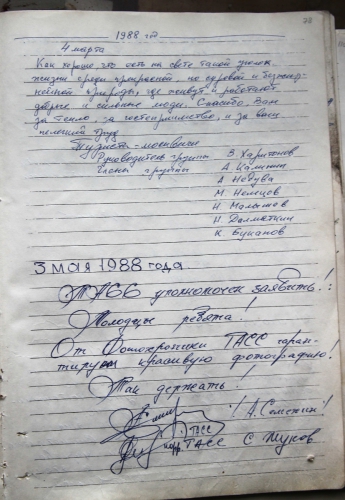 1988 год
4 марта
Как хорошо, что есть на свете такой уголок
жизни среди прекрасной, но суровой и
природы, где живут и работают
добрые и сильные люди. Спасибо Вам
за тепло, за гостеприимство, и за ваш
нелегкий труд
Туристы-москвичи
Руководитель группы В. Харитонов
Члены группы А Калинин
А Недува
М. Немцов
Н Малышов
Н. Далматкин
К. Буканов
3 мая 1988 года.
ТАСС уполномочен заявить!:
Молодцы ребята!
От Фотохроники ТАСС гаран-
тирую красивую фотографию!
Так держать!
/А. Семехин/
ТАСС
ТАСС С Жуков